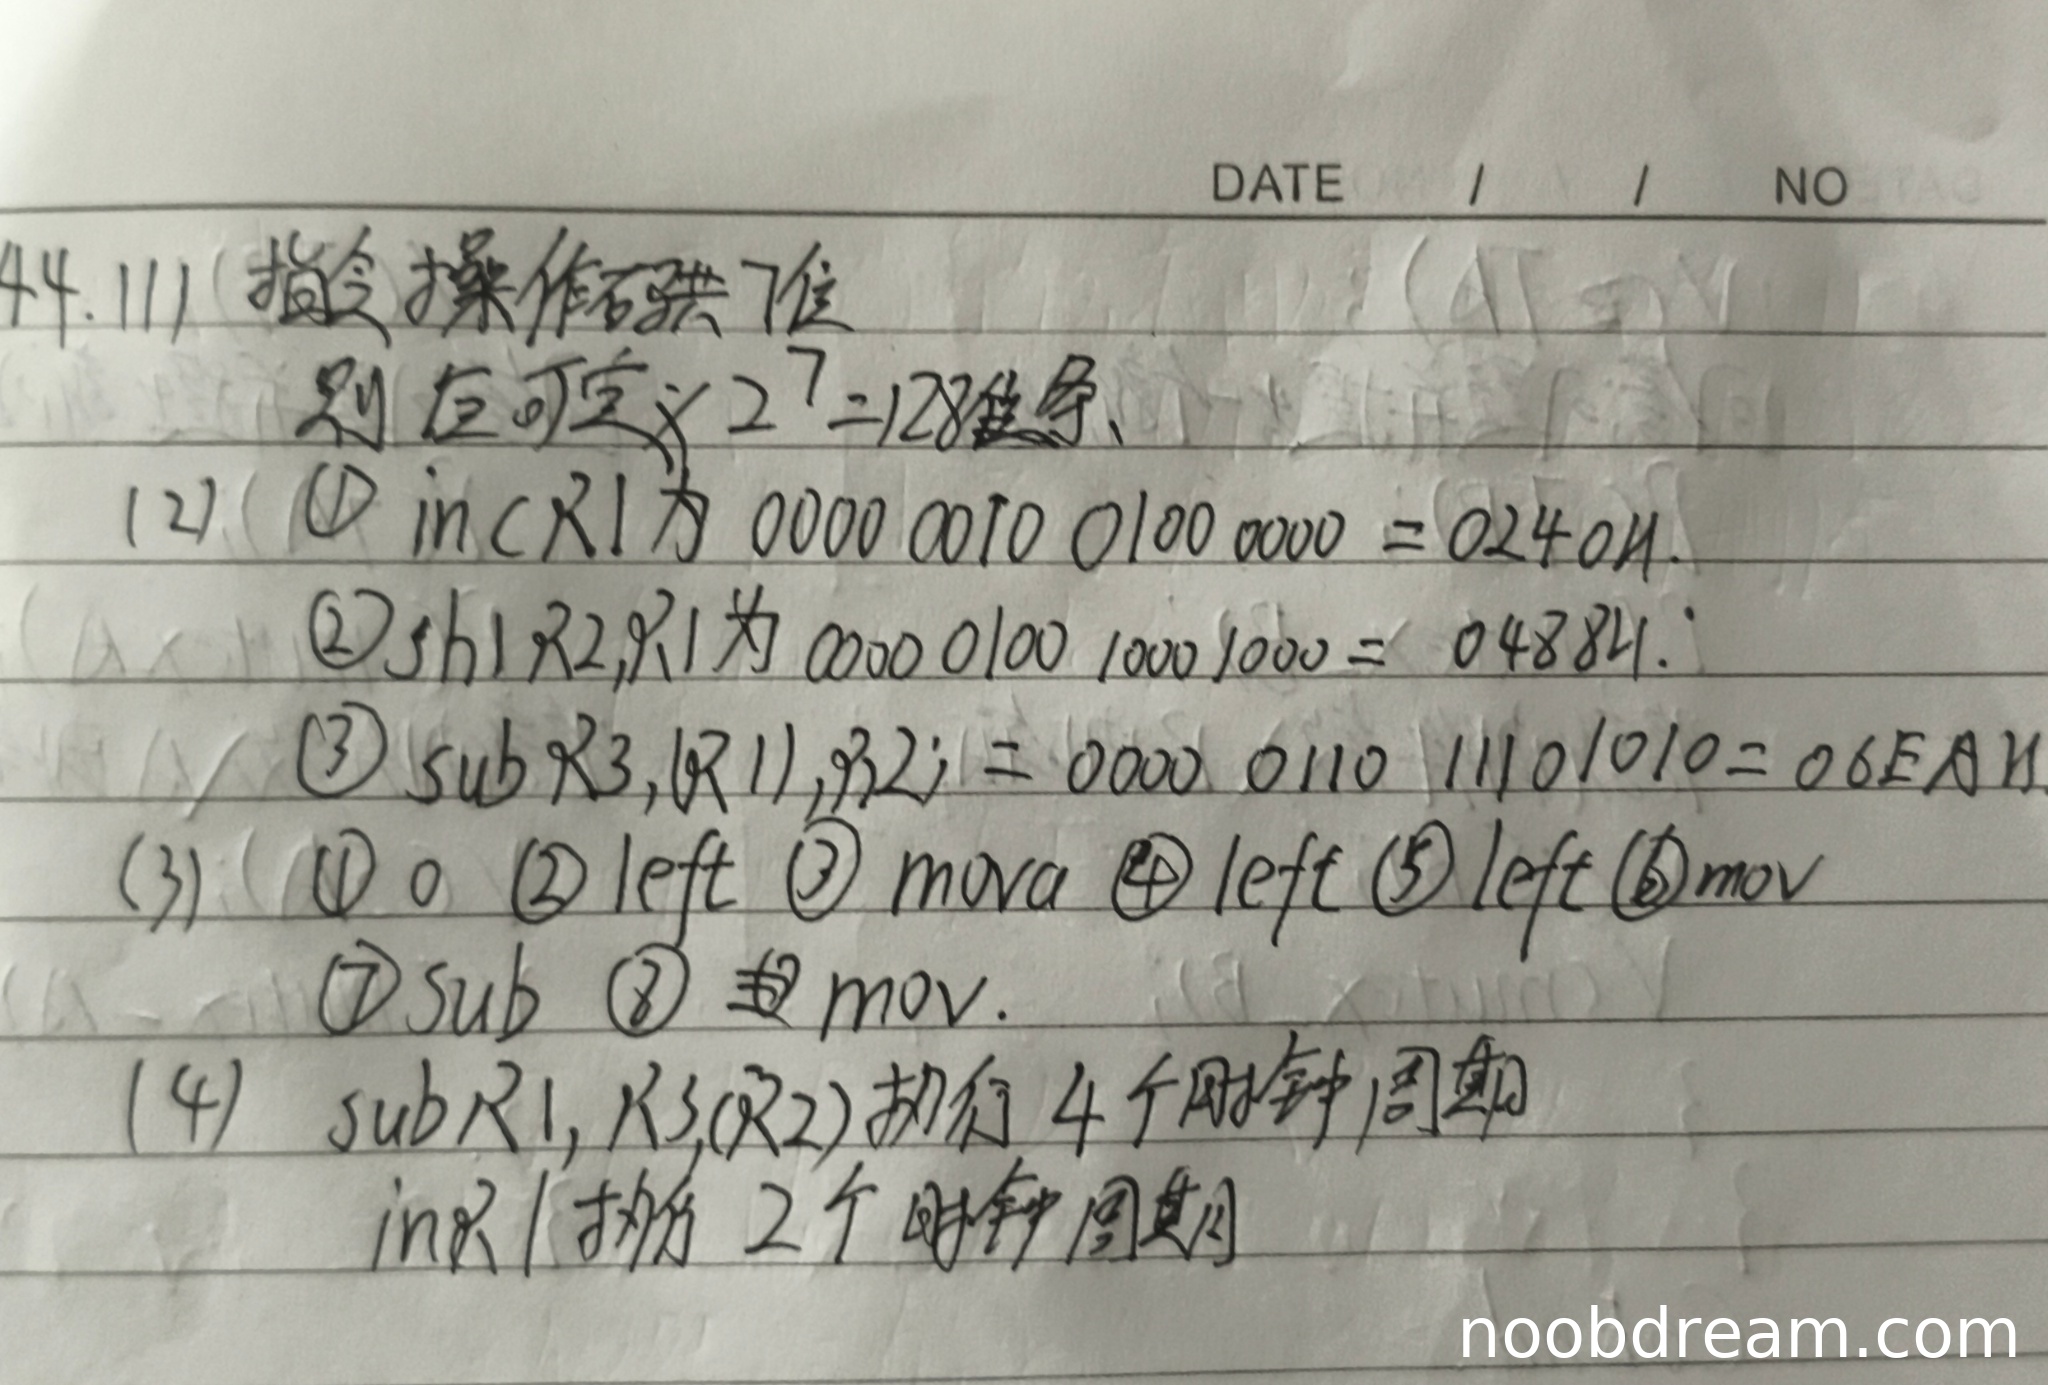 DATE / / NO
44.(1) 指令操作码共7位
则 应可定义 2⁷=128条、
(2) ① inc R1为 0000 0010 0100 0000 = 0240H.
② shl R2,R1为 0000 0100 1000 1000 = 0488H.
③ sub R3,(R1),R2; = 0000 0110 1110 1010 = 06EAH.
(3) ① 0 ② left ③ mova ④ left ⑤ left ⑥ mov
⑦ sub ⑧ mov.
(4) sub R1, R3,(R2)执行 4个时钟周期
inR1执行 2个时钟周期
noobdream.com